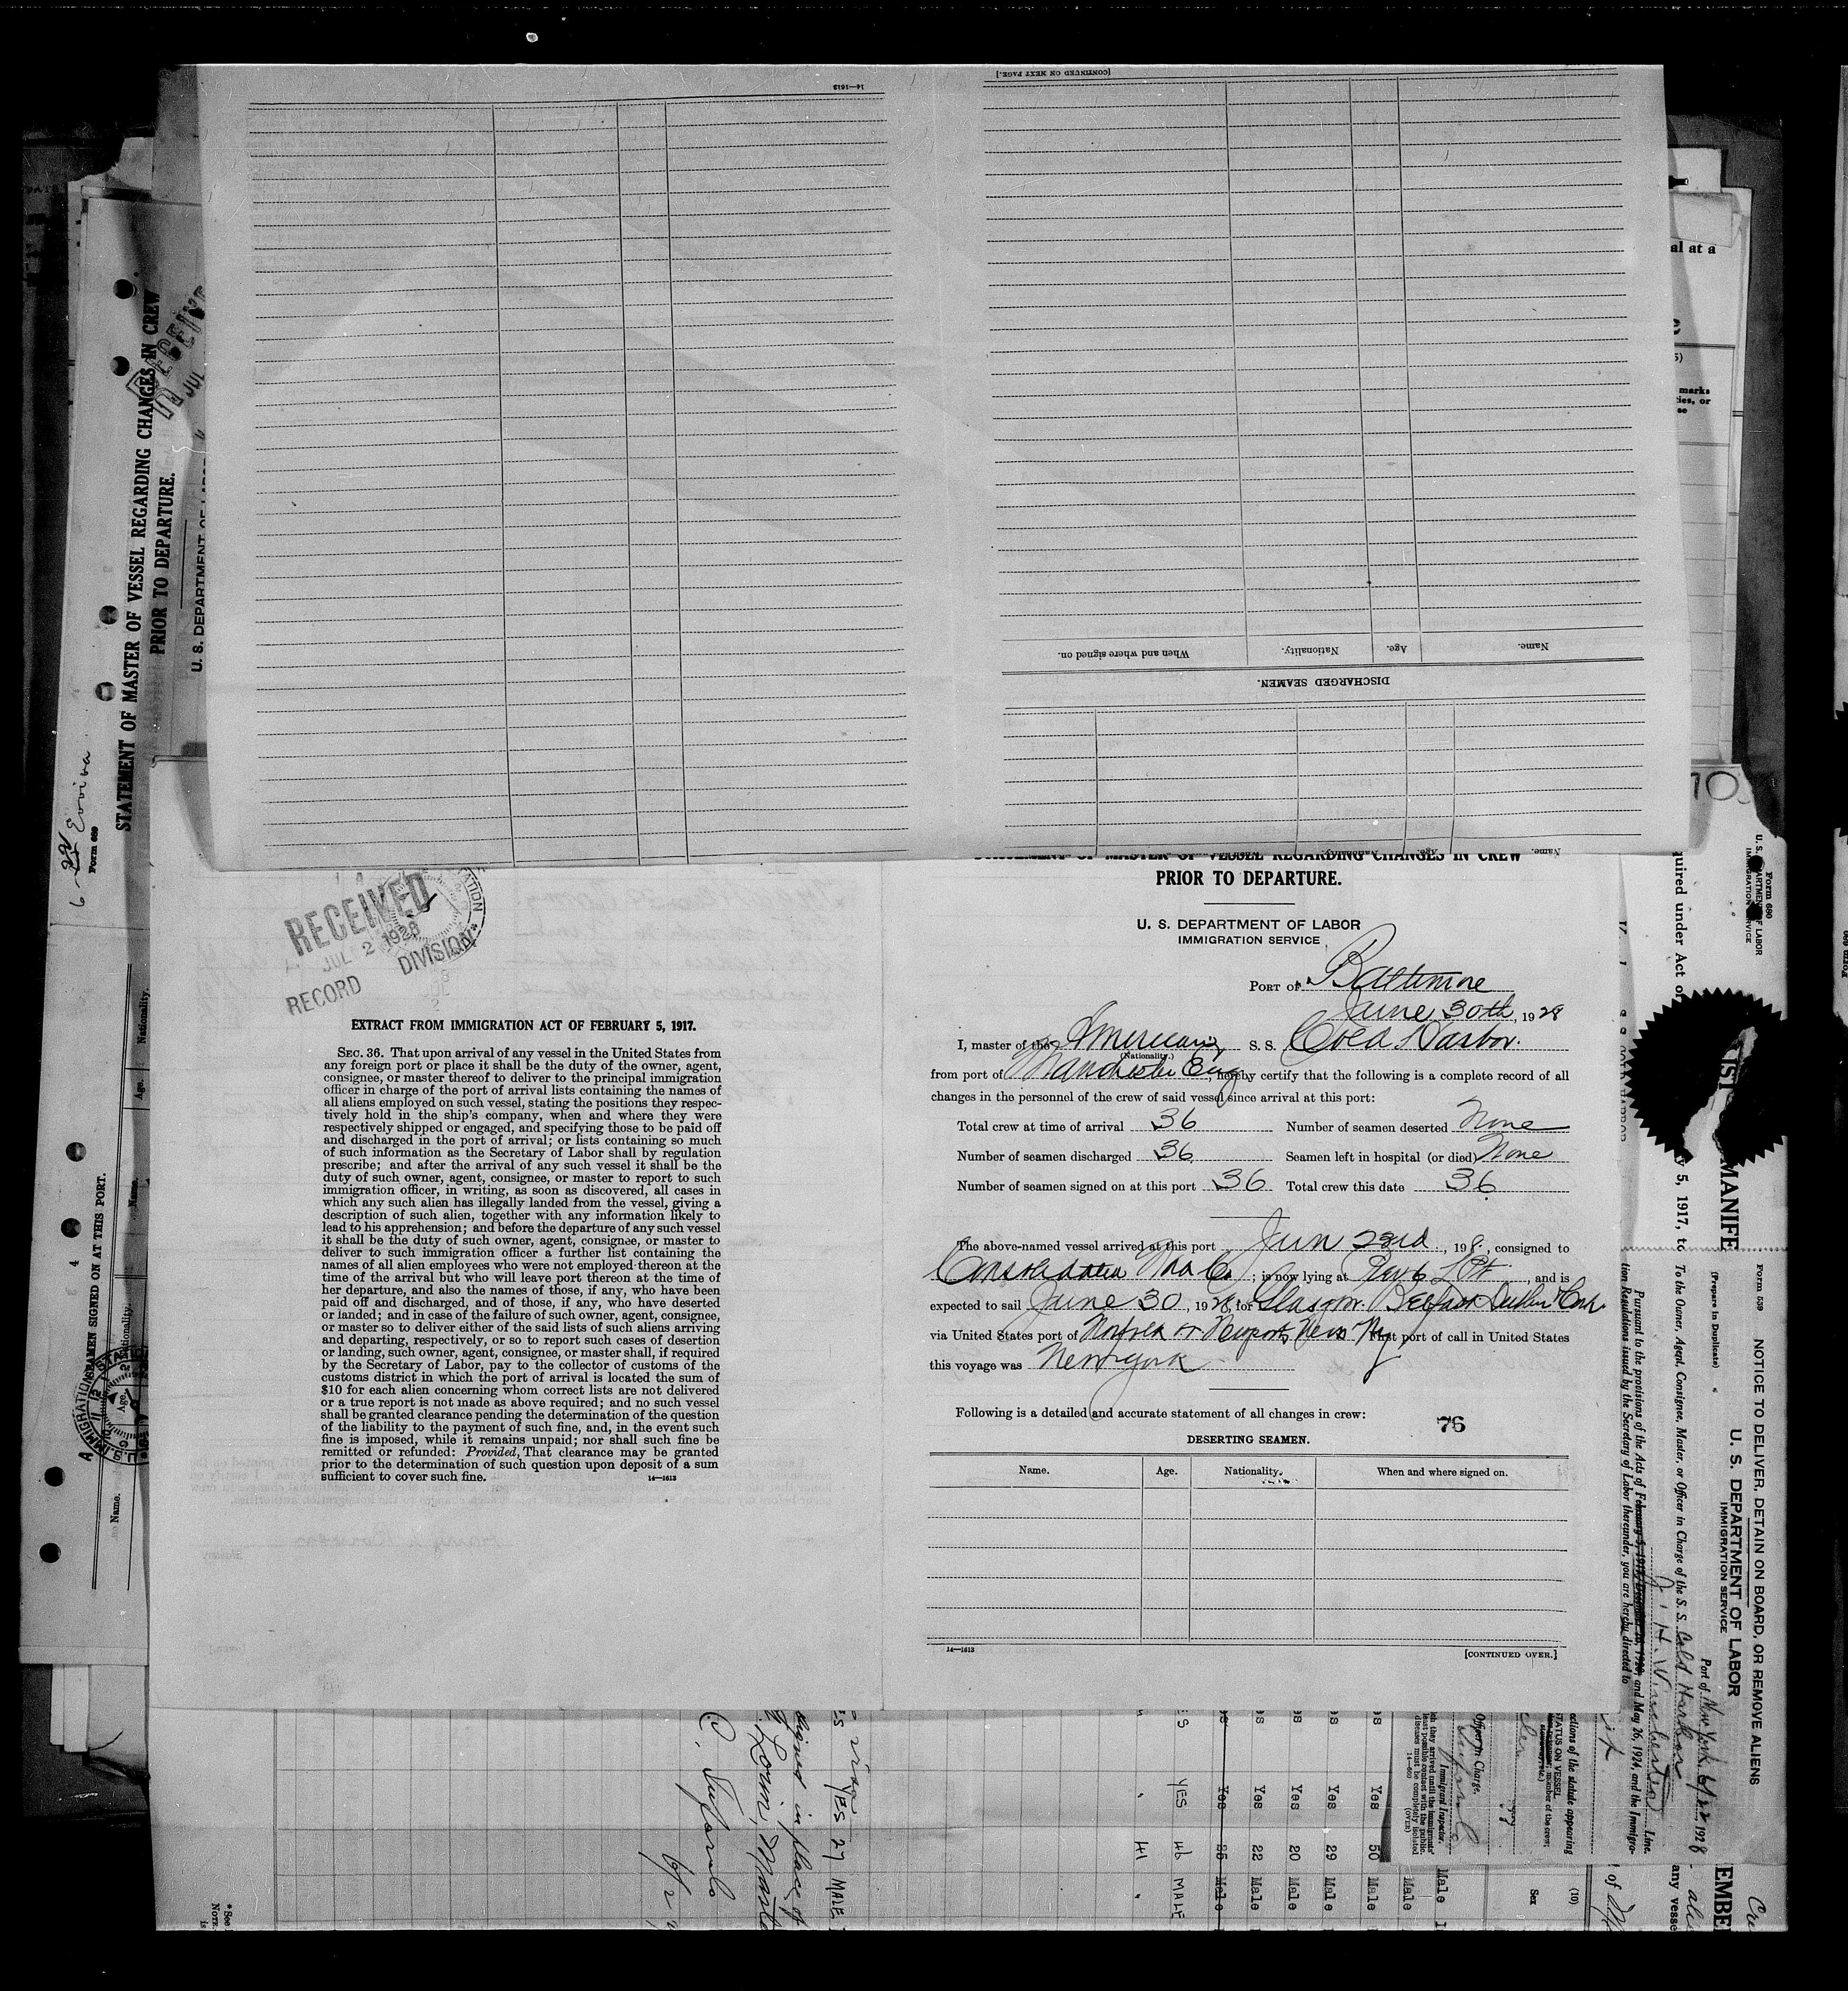 14—1613
[CONTINUED ON NEXT PAGE.]
When and where signed on.
Nationality.
Age.
Name.
DISCHARGED SEAMEN.
STATEMENT OF MASTER OF VESSEL REGARDING CHANGES IN CREW
PRIOR TO DEPARTURE.
U. S. DEPARTMENT OF LABOR
Form 689
RECEIVED
JUL 2 1928
RECORD DIVISION
EXTRACT FROM IMMIGRATION ACT OF FEBRUARY 5, 1917.
SEC. 36. That upon arrival of any vessel in the United States from
any foreign port or place it shall be the duty of the owner, agent,
consignee, or master thereof to deliver to the principal immigration
officer in charge of the port of arrival lists containing the names of
all aliens employed on such vessel, stating the positions they respec-
tively hold in the ship's company, when and where they were
respectively shipped or engaged, and specifying those to be paid off
and discharged in the port of arrival; or lists containing so much
of such information as the Secretary of Labor shall by regulation
prescribe; and after the arrival of any such vessel it shall be the
duty of such owner, agent, consignee, or master to report to such
immigration officer, in writing, as soon as discovered, all cases in
which any such alien has illegally landed from the vessel, giving a
description of such alien, together with any information likely to
lead to his apprehension; and before the departure of any such vessel
it shall be the duty of such owner, agent, consignee, or master to
deliver to such immigration officer a further list containing the
names of all alien employees who were not employed thereon at the
time of the arrival but who will leave port thereon at the time of
her departure, and also the names of those, if any, who have been
paid off and discharged, and of those, if any, who have deserted
or landed; and in case of the failure of such owner, agent, consignee,
or master so to deliver either of the said lists of such aliens arriving
and departing, respectively, or so to report such cases of desertion
or landing, such owner, agent, consignee, or master shall, if required
by the Secretary of Labor, pay to the collector of customs of the
customs district in which the port of arrival is located the sum of
$10 for each alien concerning whom correct lists are not delivered
or a true report is not made as above required; and no such vessel
shall be granted clearance pending the determination of the question
of the liability to the payment of such fine, and, in the event such
fine is imposed, while it remains unpaid; nor shall such fine be
remitted or refunded: Provided, That clearance may be granted
prior to the determination of such question upon deposit of a sum
sufficient to cover such fine. 14—1613
STATEMENT OF MASTER OF VESSEL REGARDING CHANGES IN CREW
PRIOR TO DEPARTURE.
U. S. DEPARTMENT OF LABOR
IMMIGRATION SERVICE
PORT OF Baltimore
June 30th, 1928
I, master of the American S. S. Cold Harbor.
(Nationality.)
from port of Manchester Eng, hereby certify that the following is a complete record of all
changes in the personnel of the crew of said vessel since arrival at this port:
Total crew at time of arrival 36 Number of seamen deserted None
Number of seamen discharged 36 Seamen left in hospital (or died) None
Number of seamen signed on at this port 36 Total crew this date 36
The above-named vessel arrived at this port Jun 23rd, 198, consigned to
Consolidated Co; is now lying at , and is
expected to sail June 30, 1928, for Glasgow Belfast Dublin Cork
via United States port of Norfolk or Newport News port of call in United States
this voyage was New York
Following is a detailed and accurate statement of all changes in crew:
76
DESERTING SEAMEN.
Name. Age. Nationality. When and where signed on.
14—1613 [CONTINUED OVER.]
SEAMEN SIGNED ON AT THIS PORT.
Name. Age. Nationality.
Form 680
U. S. DEPARTMENT OF LABOR
IMMIGRATION SERVICE
Form 539
NOTICE TO DELIVER, DETAIN ON BOARD, OR REMOVE ALIENS
U. S. DEPARTMENT OF LABOR
IMMIGRATION SERVICE
(Prepare in Duplicate)
Port of New York 6/22 1928
To the Owner, Agent, Consignee, Master, or Officer in Charge of the S. S. Cold Harbor
Line.
Pursuant to the provisions of the Acts of February 5, 1917, December 26, 1920, and May 26, 1924, and the Immigra-
tion Regulations issued by the Secretary of Labor thereunder, you are hereby directed to
Officer in Charge.
Immigrant Inspector.
Yes 50
Yes 29 Male
Yes 20 Male
Yes 22 Male
YES 46 MALE
41
YES 27 MALE
signed in place of
Sex
(10)